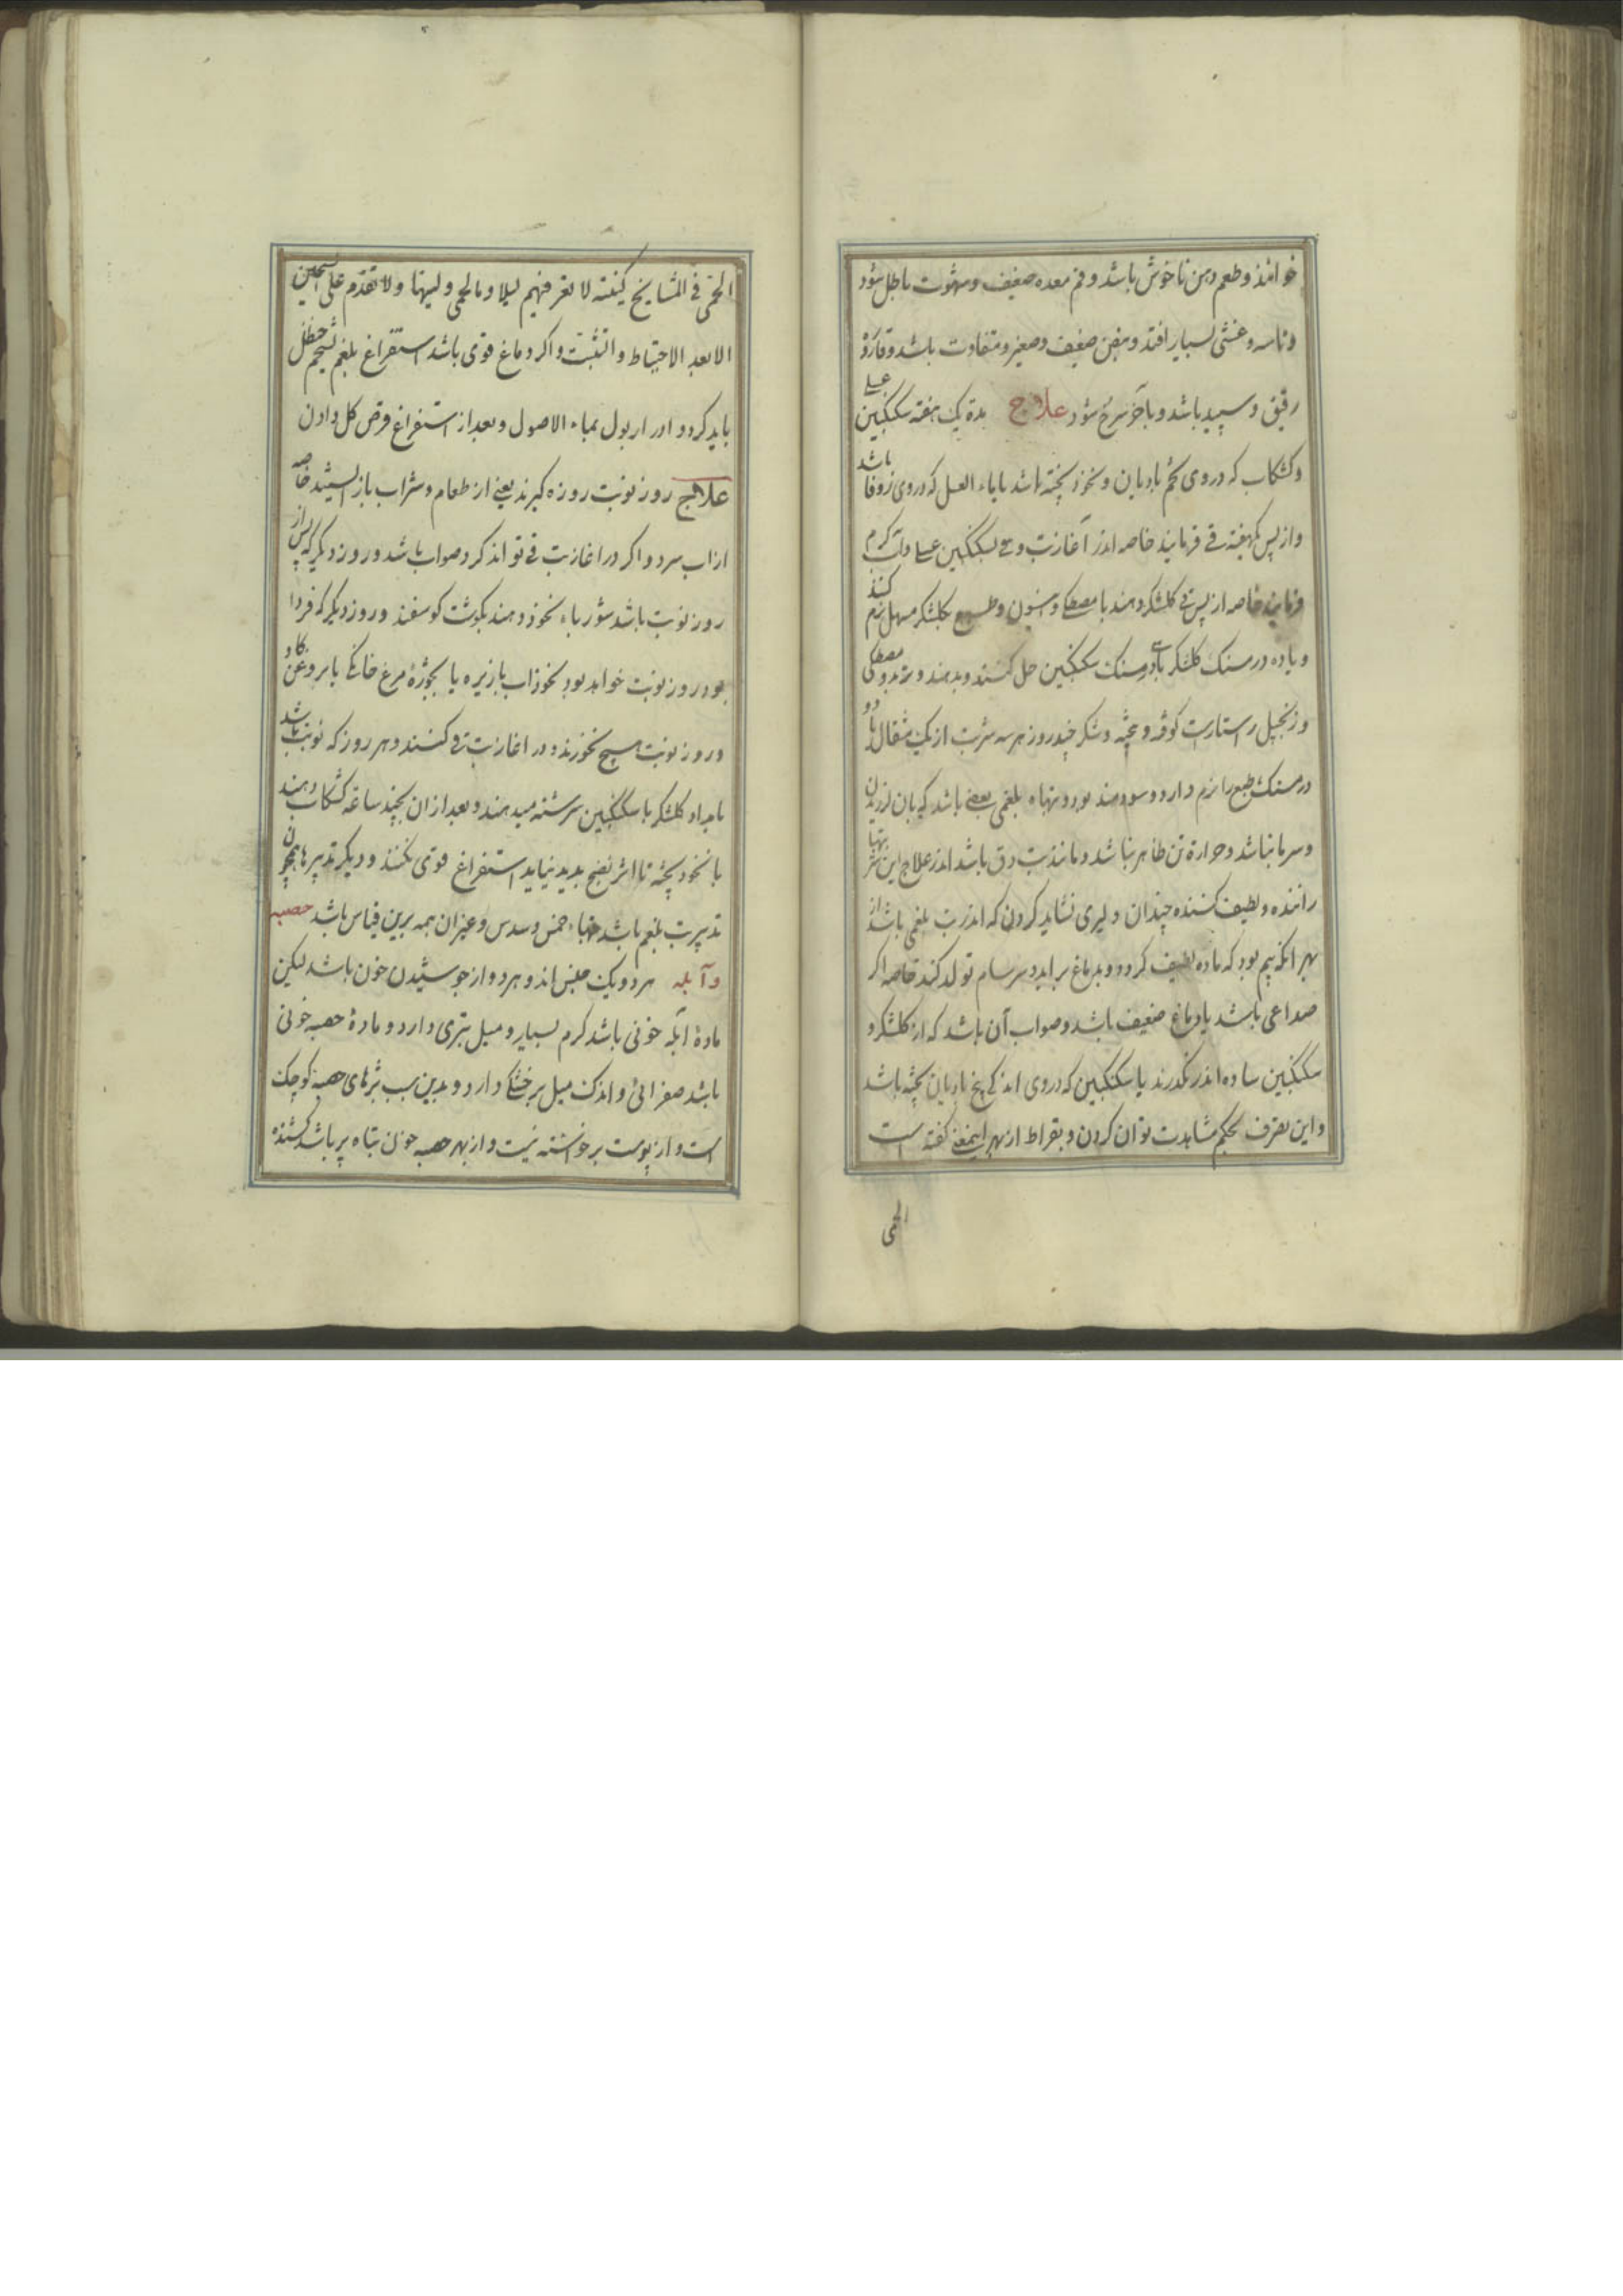 خوانند و طعم دهن ناخوش باشد و فم معده ضعیف و شهوت باطل شود
و تاسه و غشی بسیار افتد و نبض ضعیف و صغیر و متفاوت باشد و قاروره
رقیق و سپید باشد و باخر سرخ شود علاج مدة یک هفته سکنکبین عسلی
و کشکاب که در وی تخم بادیان و نخود پخته باشد یا ماء العسل که در وی زوفا باشد
و از پس یکهفته قی فرمایند خاصه اندر آغاز تب و قی بسکنکبین عسلی و آب کرم
فرمایند خاصه از پس قی کلشکر دهند با مصطکی و انیسون و طبع بکلشکر مسهل نرم کنند
و یا ده درمسنک کلشکر با درمسنک سکنکبین حل کنند و بدهند و تربد و مصطکی
و زنجبیل راستاراست کوفته و پخته و شکر چند روز هر سه شربت از یک مثقال تا دو
درمسنک طبع را نرم دارد و سودمند بود و تبهاء بلغمی بعضی باشد که بان لرزیدن
و سرما نباشد و حرارة تن ظاهر نباشد و مانند تب دق باشد اندر علاج این تبها
راننده و لطیف کننده چندان دلیری نشاید کردن که اندر تب بلغمی باشد از
بهر انکه بیم بود که ماده لطیف کردد و بدماغ براید و سرسام تولد کند خاصه اکر
صداعی باشد یا دماغ ضعیف باشد و صواب آن باشد که از کلشکر و
سکنکبین ساده اندر نکذرند یا سکنکبین که در وی اندکی بیخ بادیان پخته باشد
و این تصرف بحکم مشاهدت توان کردن و بقراط از بهر اینمعنی کفته است
الحمی
الحمی فی المشایخ لا تغر فیهم لیلا و ما لحمی و لینها و لا تقدم علی
الا بعد الاحتیاط و التثبت و اکر دماغ قوی باشد استفراغ بلغم بشحم حنظل
باید کرد و ادرار بول بماء الاصول و بعد از استفراغ قرص کل دادن
علاج روز نوبت روزه کیرند یعنی از طعام و شراب باز ایستند خاصه
از اب سرد و اکر در اغاز تب قی تواند کرد صواب باشد و روز دیکر که پس از
روز نوبت باشد شورباء نخود دهند بکوشت کوسفند و روز دیکر که فردا
بود روز نوبت خواهد بود نخوداب با زیره یا بجوژهٔ مرغ خانکی یا بروغن کاو
و روز نوبت هیچ نخورند و در اغاز تب قی کنند و هر روز که نوبت باشد
بامداد کلشکر با سکنکبین سرشته میدهند و بعد از ان بچند ساعة کشکاب دهند
با نخود پخته تا اثر نضج پدید نیاید استفراغ قوی نکنند و دیکر تدبیرها همچون
تدبیر تب بلغم باشد تبهاء خمس و سدس و غیر ان همه برین قیاس باشد حصبه
و آبله هر دو یک جنس اند و هر دو از جوشیدن خون باشد لیکن
مادهٔ آبله خونی باشد کرم بسیار و میل بتری دارد و مادهٔ حصبه خونی
باشد صفرائی و اندک میل بر خشکی دارد و بدین سبب بثرهای حصبه کوچک
است و از پوست برخواشته نیست و از بهر حصبه خون تباه پر باشد کشنده